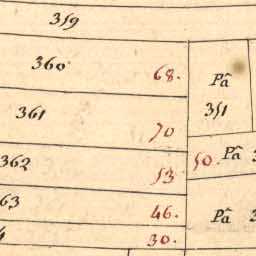 359
360 68. Pâ
351
361 70
362 53 50. Pâ
63 46. Pâ
30.